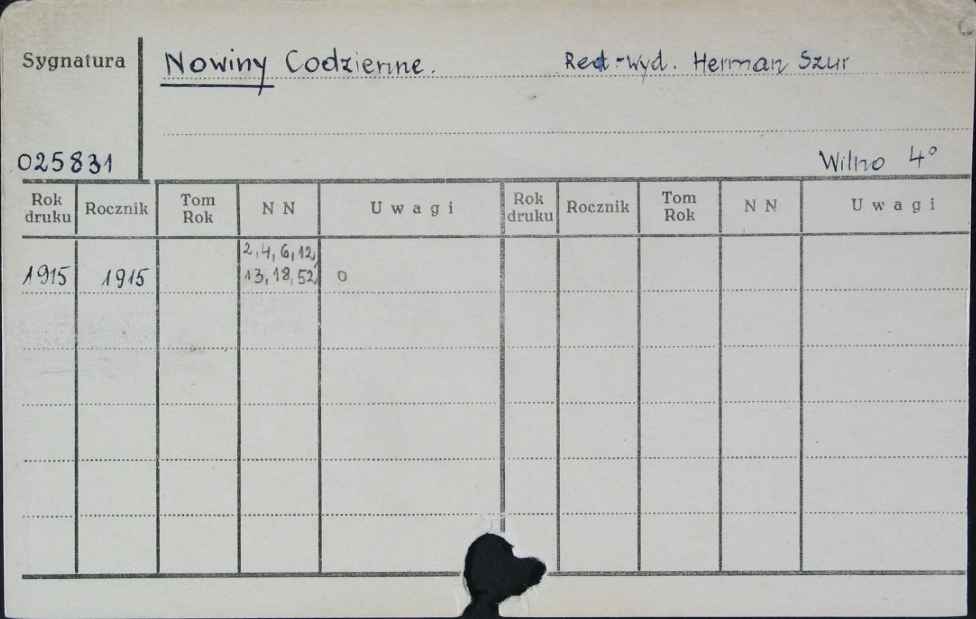 Sygnatura Nowiny Codzienne. Red-wyd. Herman Szur
025831 Wilno 4°
Rok druku Rocznik Tom Rok N N Uwagi Rok druku Rocznik Tom Rok N N Uwagi
2,4,6,12,
1915 1915 13,18,52 0